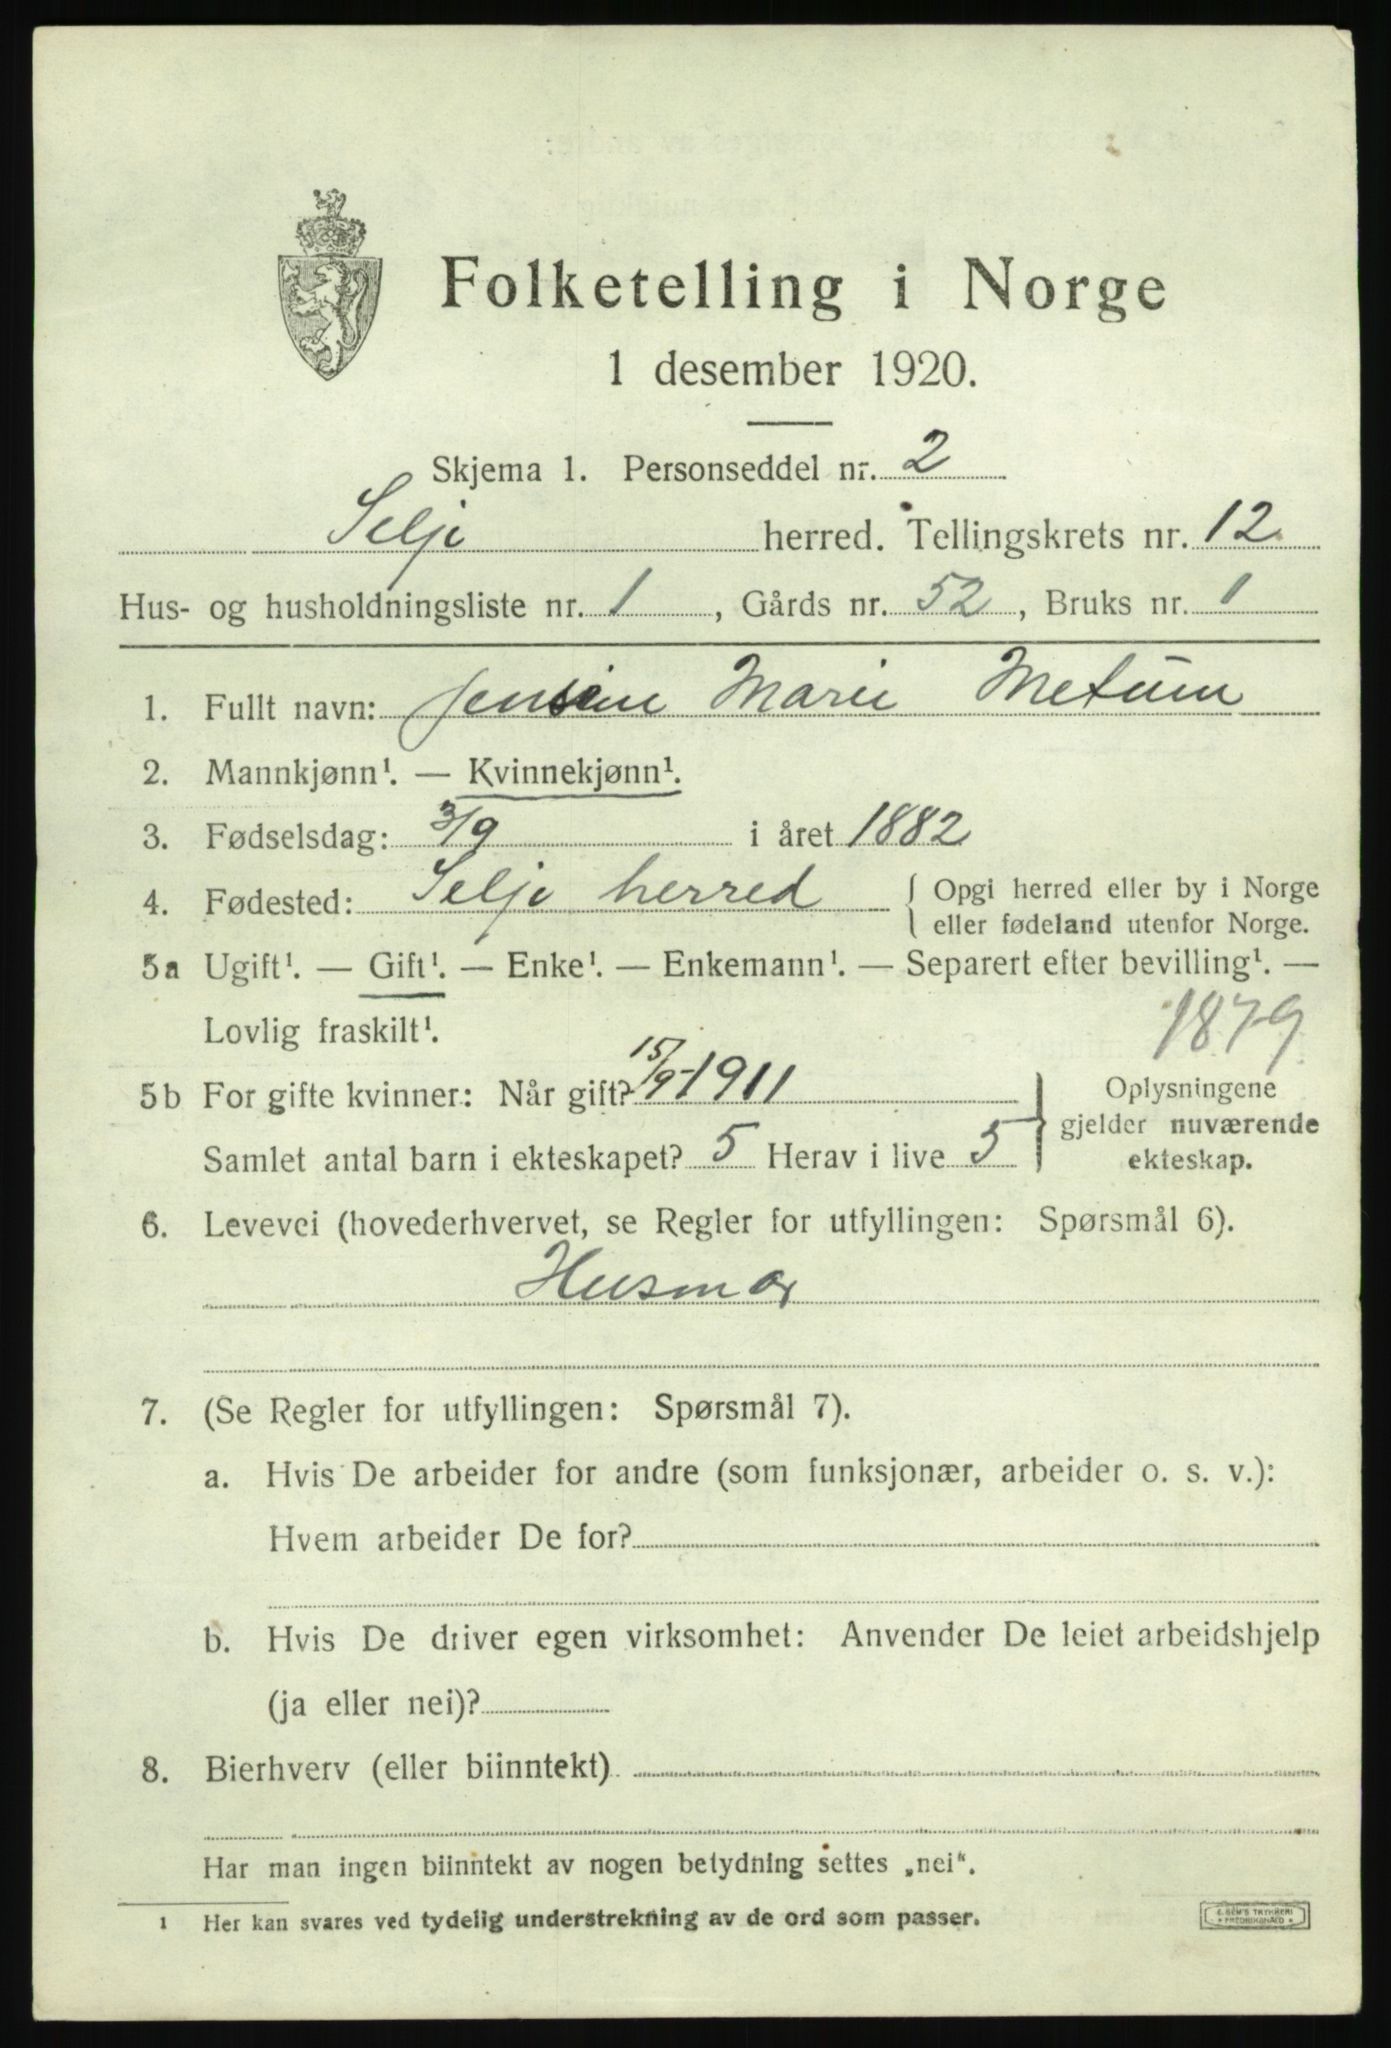 Folketelling i Norge
1 desember 1920.
Skjema 1. Personseddel nr. 2
Selje herred. Tellingskrets nr. 12
Hus- og husholdningsliste nr. 1, Gårds nr. 52, Bruks nr. 1
1. Fullt navn: Jensine Marie Metūm
2. Mannkjønn¹. — Kvinnekjønn¹.
3. Fødselsdag: 3/9 i året 1882
4. Fødested: Selje herred { Opgi herred eller by i Norge
eller fødeland utenfor Norge.
5a Ugift¹. — Gift¹. — Enke¹. — Enkemann¹. — Separert efter bevilling¹. —
Lovlig fraskilt¹.
1879
5b For gifte kvinner: Når gift? 15/9-1911
Samlet antal barn i ekteskapet? 5 Herav i live 5
} Oplysningene
gjelder nuværende
ekteskap.
6. Levevei (hovederhvervet, se Regler for utfyllingen: Spørsmål 6).
Husmor
7. (Se Regler for utfyllingen: Spørsmål 7).
a. Hvis De arbeider for andre (som funksjonær, arbeider o. s. v.):
Hvem arbeider De for?
b. Hvis De driver egen virksomhet: Anvender De leiet arbeidshjelp
(ja eller nei)?
8. Bierhverv (eller biinntekt)
Har man ingen biinntekt av nogen betydning settes „nei“.
¹ Her kan svares ved tydelig understrekning av de ord som passer.
E. SEM'S TRYKKERI
* FREDRIKSHALD *